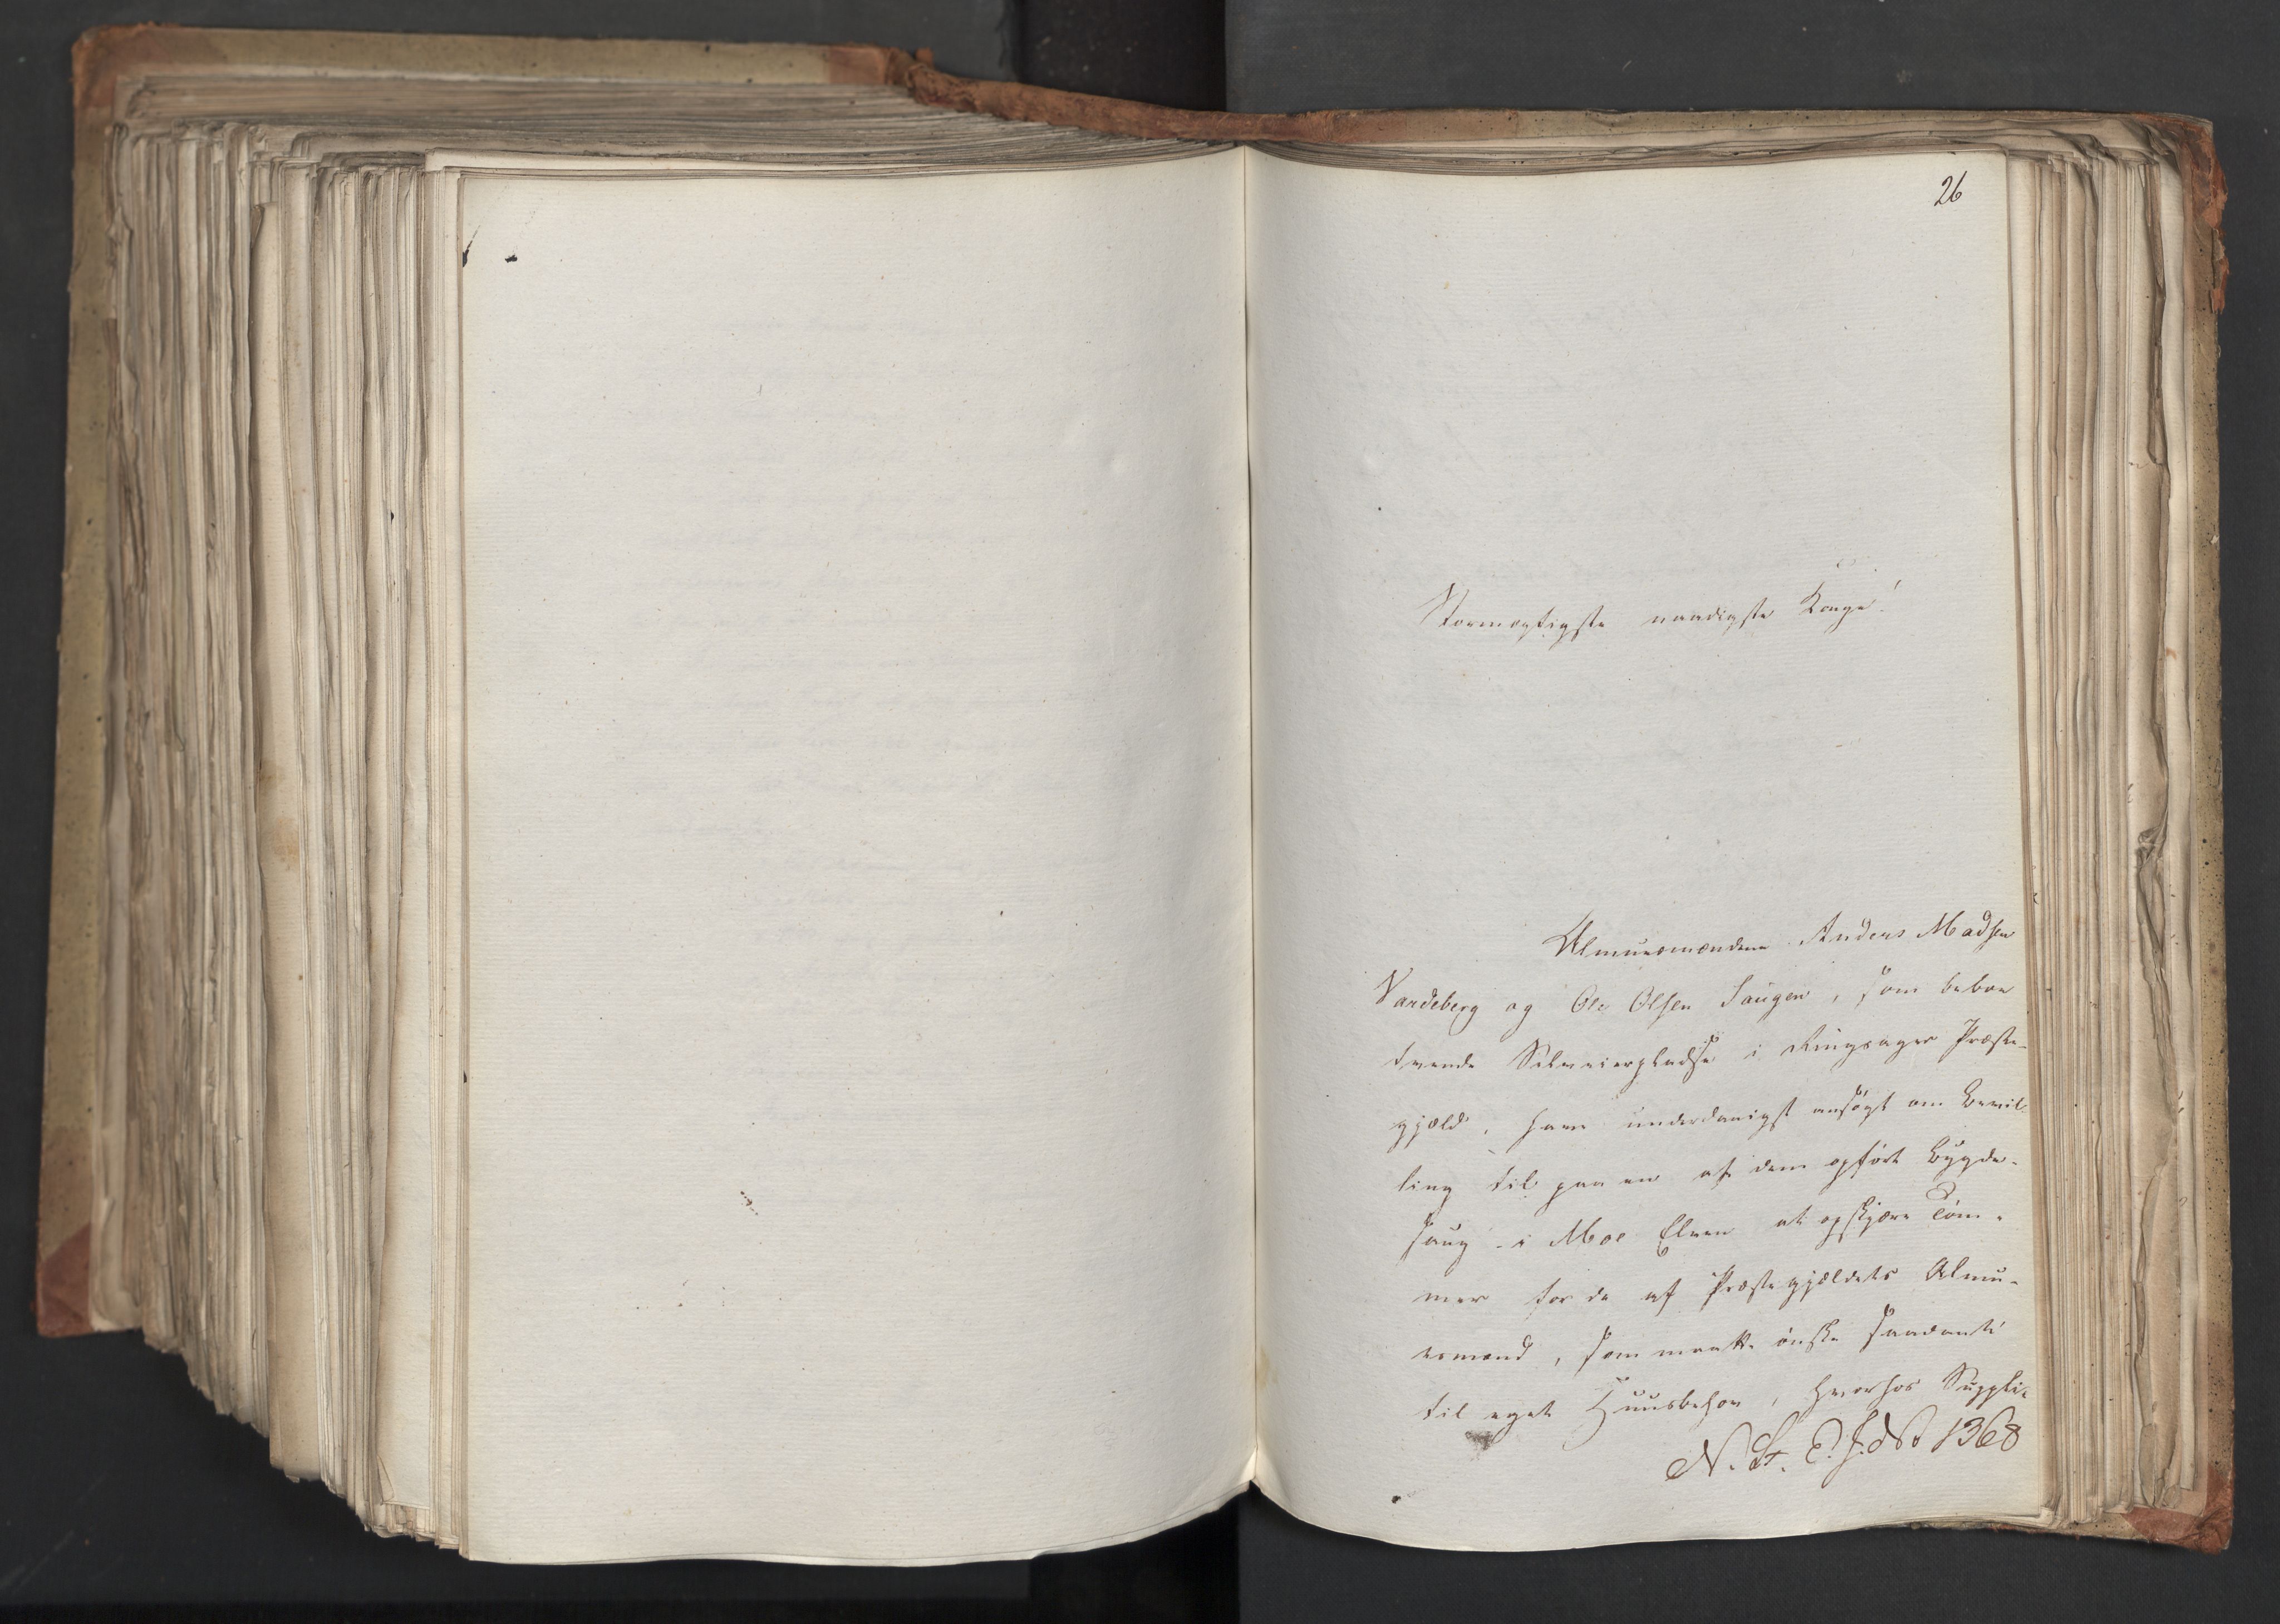 26
Stormægtigste naadigste Konge!
Almuesmændene Anders Madsen
Vardeberg og Ole Olsen Saugen, som beboe
tvende Selveierpladse i Ringsager Præste-
gjæld, have underdanigst ansøgt om Bevil-
ling til paa en af dem opført Bygde-
saug i Moe Elven at opskjære Töm-
mer for de af Præstegjældets Almu-
esmænd, som maatte ønske saadant
til eget Huusbehov, hvorhos Suppli-
N. St. E. J. No 1368